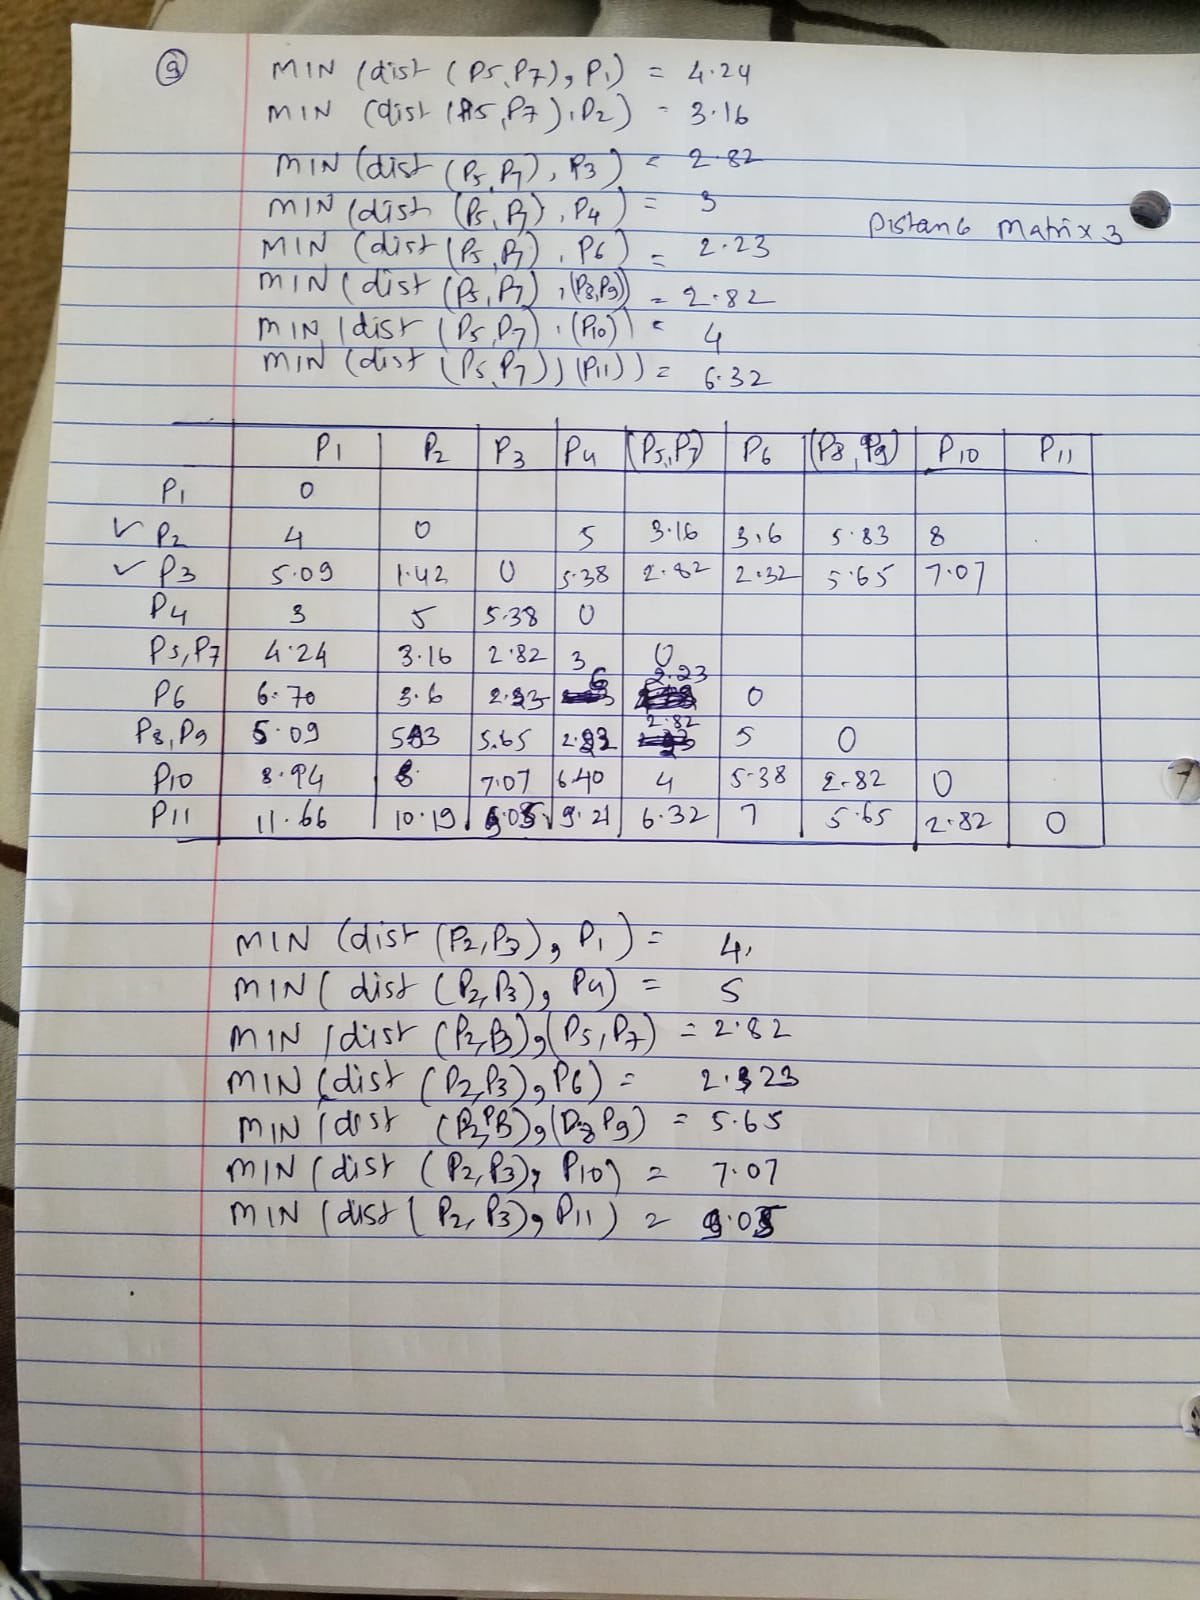 9
MIN (dist (P5, P7), P1) = 4.24
MIN (dist (P5, P7), P2) = 3.16
MIN (dist (P5, P7), P3) = 2.82
MIN (dist (P5, P7), P4) = 3
Distance Matrix 3
MIN (dist (P5, P7), P6) = 2.23
MIN (dist (P5, P7), (P8,P9)) = 2.82
MIN (dist (P5, P7), (P10)) = 4
MIN (dist (P5, P7)) (P11)) = 6.32
P1 P2 P3 P4 (P5,P7) P6 (P8, P9) P10 P11
P1 0
✓ P2 4 0 5 3.16 3.6 5.83 8
✓ P3 5.09 1.42 0 5.38 2.82 2.32 5.65 7.07
P4 3 5 5.38 0
P5,P7 4.24 3.16 2.82 3 0
P6 6.70 3.6 6 2.23 0
P8,P9 5.09 5.65 2.82 5 0
P10 8.94 8 7.07 6.40 4 5.38 2.82 0
P11 11.66 10.19 9.21 6.32 7 5.65 2.82 0
MIN (dist (P2,P3), P1) = 4
MIN (dist (P2,P3), P4) = 5
MIN (dist (P2,P3), (P5, P7) = 2.82
MIN (dist (P2,P3), P6) =
MIN (dist (P2,P3), (P8 P9) = 5.65
MIN (dist (P2,P3), P10) = 7.07
MIN (dist ( P2, P3), P11) =